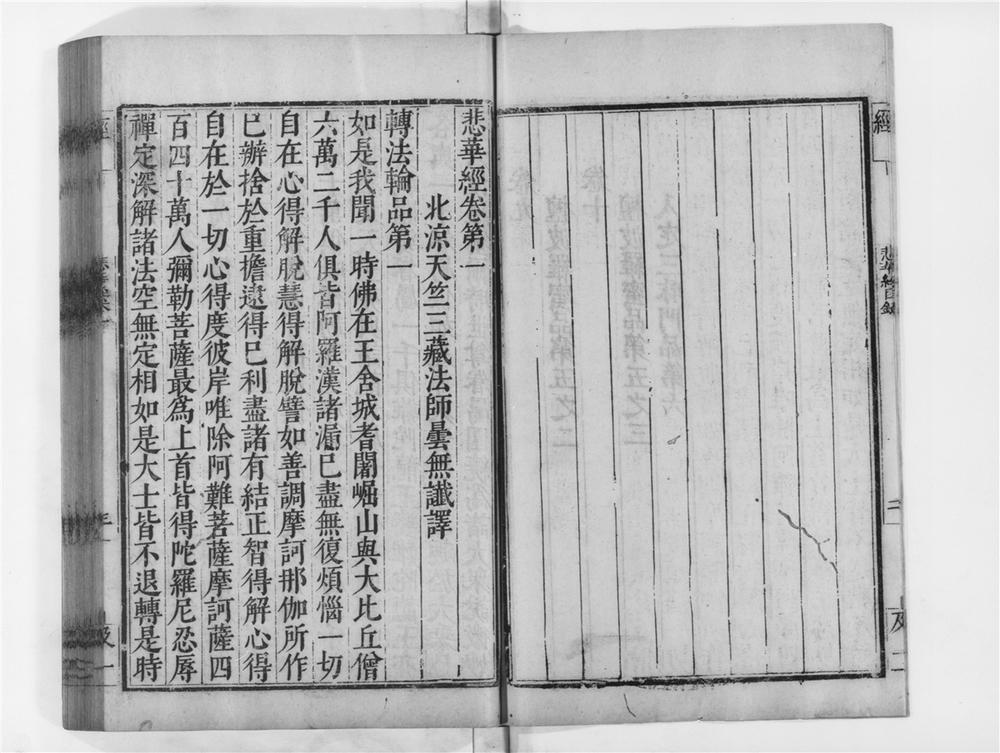 經
悲華經目錄
二
及二
悲華經卷第一
北涼天竺三藏法師曇無讖譯
轉法輪品第一
如是我聞一時佛在王舍城耆闍崛山與大比丘僧
六萬二千人俱皆阿羅漢諸漏已盡無復煩惱一切
自在心得解脫慧得解脫譬如善調摩訶那伽所作
已辦捨於重擔逮得已利盡諸有結正智得解心得
自在於一切心得度彼岸唯除阿難菩薩摩訶薩四
百四十萬人彌勒菩薩最爲上首皆得陀羅尼忍辱
禪定深解諸法空無定相如是大士皆不退轉是時
經
及一